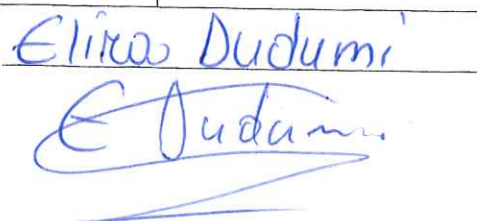 Elira Dudumi
E Dudumi